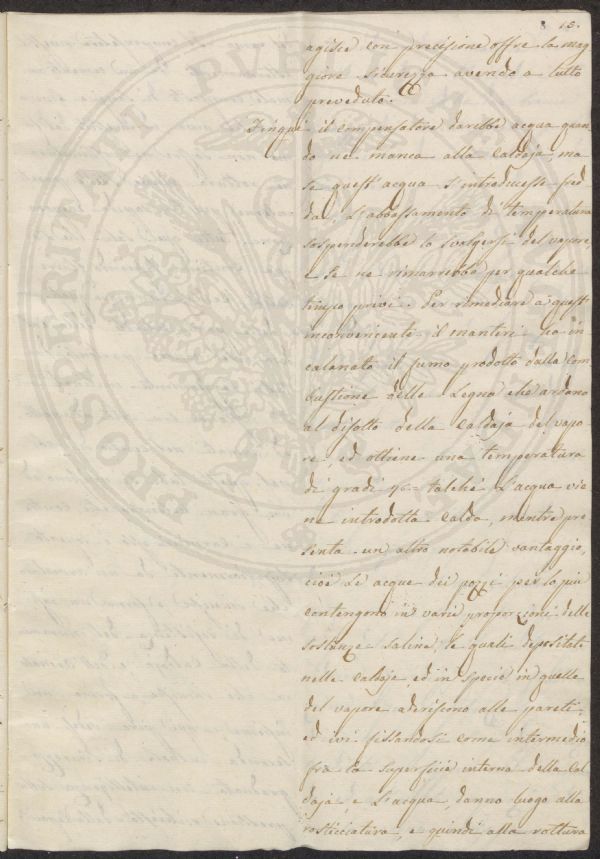 18.
agisce con precisione offre la mag
giore sicurezza avendo a tutto
preveduto.
Dinque il compensatore darebbe acqua quan
do ne manca alla Caldaja, ma
se quest' acqua s'introducesse fred
da, l'abbassamento di temperatura
sospenderebbe lo svolgersi del vapore,
e se ne rimarrebbe per qualche
tempo privi. Per rimediare a quest'
inconveniente il Manteri ha in
calanato il fumo prodotto dalla Com
bustione delle Legna che ardono
al disotto della Caldaja del vapo
re, ed ottiene una temperatura
di gradi talché l'acqua vie
ne introdotta calda, mentre pre
senta un altro notabile vantaggio,
cioè Le acque dei pozzi per lo più
contengono in varie proporzioni delle
sostanze saline, le quali depositate
nelle caldaje ed in specie in quelle
del vapore aderiscono alle pareti,
ed ivi fissandosi come intermedio
fra la superficie interna della Cal
daja, e l'acqua danno luogo alla
rosticciatura, e quindi alla rottura
PROSPERITATI PUBLICAE